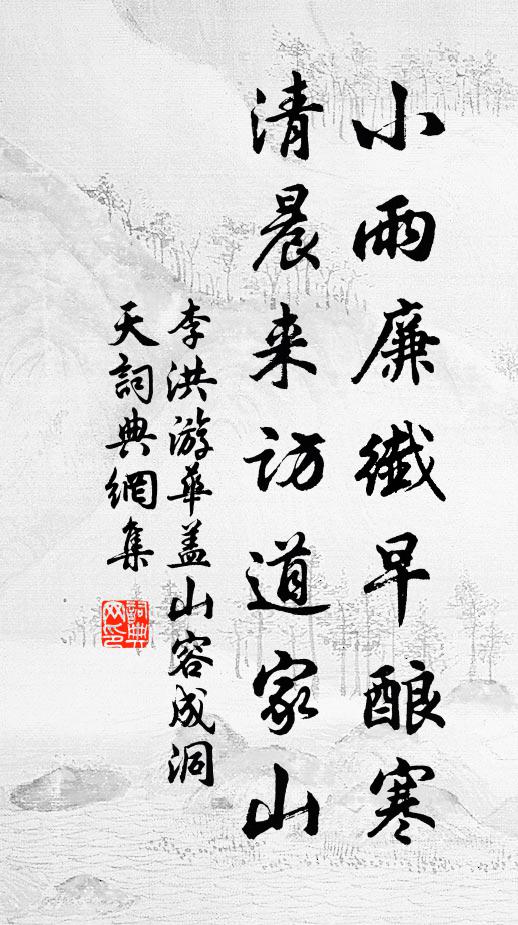 小雨廉纖早酿寒
清晨来訪道家山
李洪游華盖山容成洞
天詞典網集
詞典网印